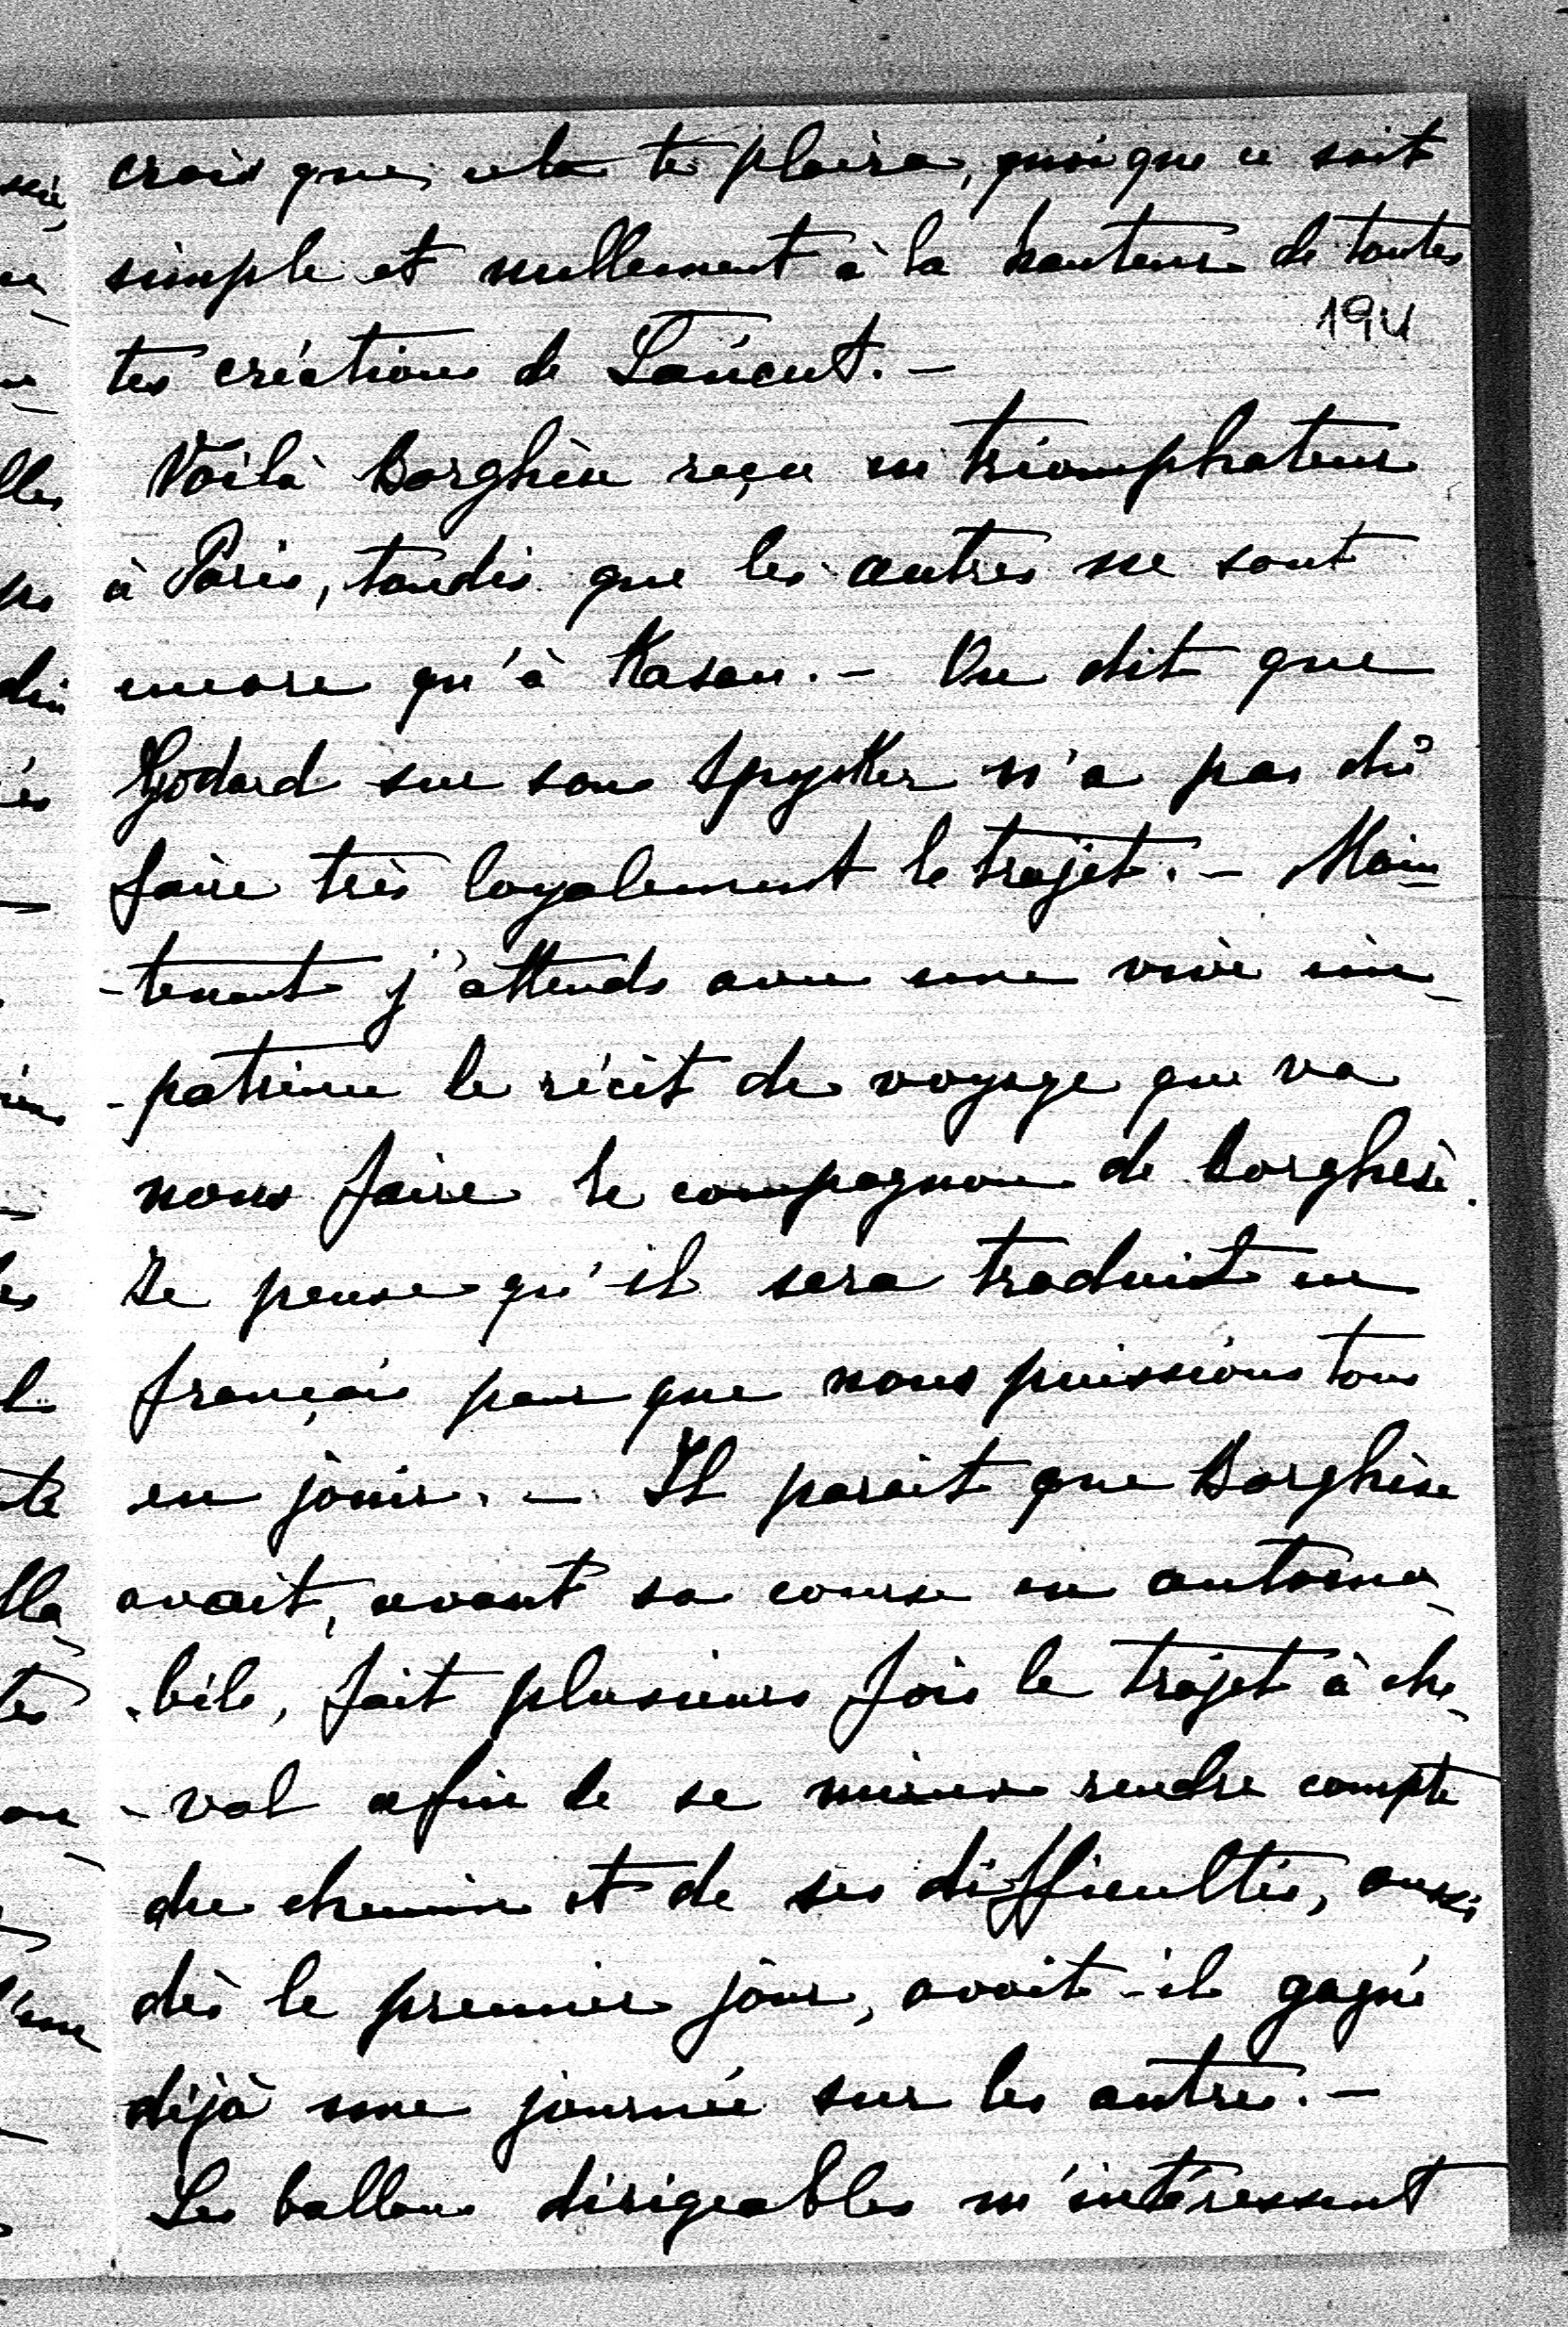 crois que cela te plaira, quoique ce soit
simple et nullement à la hauteur de toutes
194
tes créations de Łańcut. —
Voilà Borghèse reçu en triomphateur
à Paris, tandis que les autres ne sont
encore qu'à Kasan. — On dit que
Godard sur son Spyker n'a pas dû
faire très loyalement le trajet. — Main-
-tenant j'attends avec une vive im-
-patience le récit de voyage que va
nous faire le compagnon de Borghèse.
Je pense qu'il sera traduit en
français pour que nous puissions tous
en jouir. — Il parait que Borghèse
avait, avant sa course en automo-
-bile, fait plusieurs fois le trajet à che-
-val afin de se mieux rendre compte
du chemin et de ses difficultés, aussi
dès le premier jour, avait-il gagné
déjà une journée sur les autres. —
Les ballons dirigeables m'intéressent